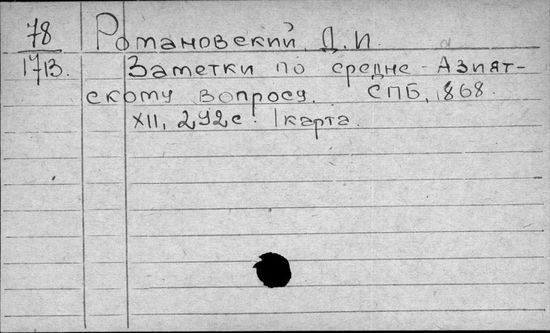 78 Романовский, Д.И.
1713. Заметки по средне-Азият-
скому вопросу. СПБ, 1868.
XII, 292 с. 1 карта.